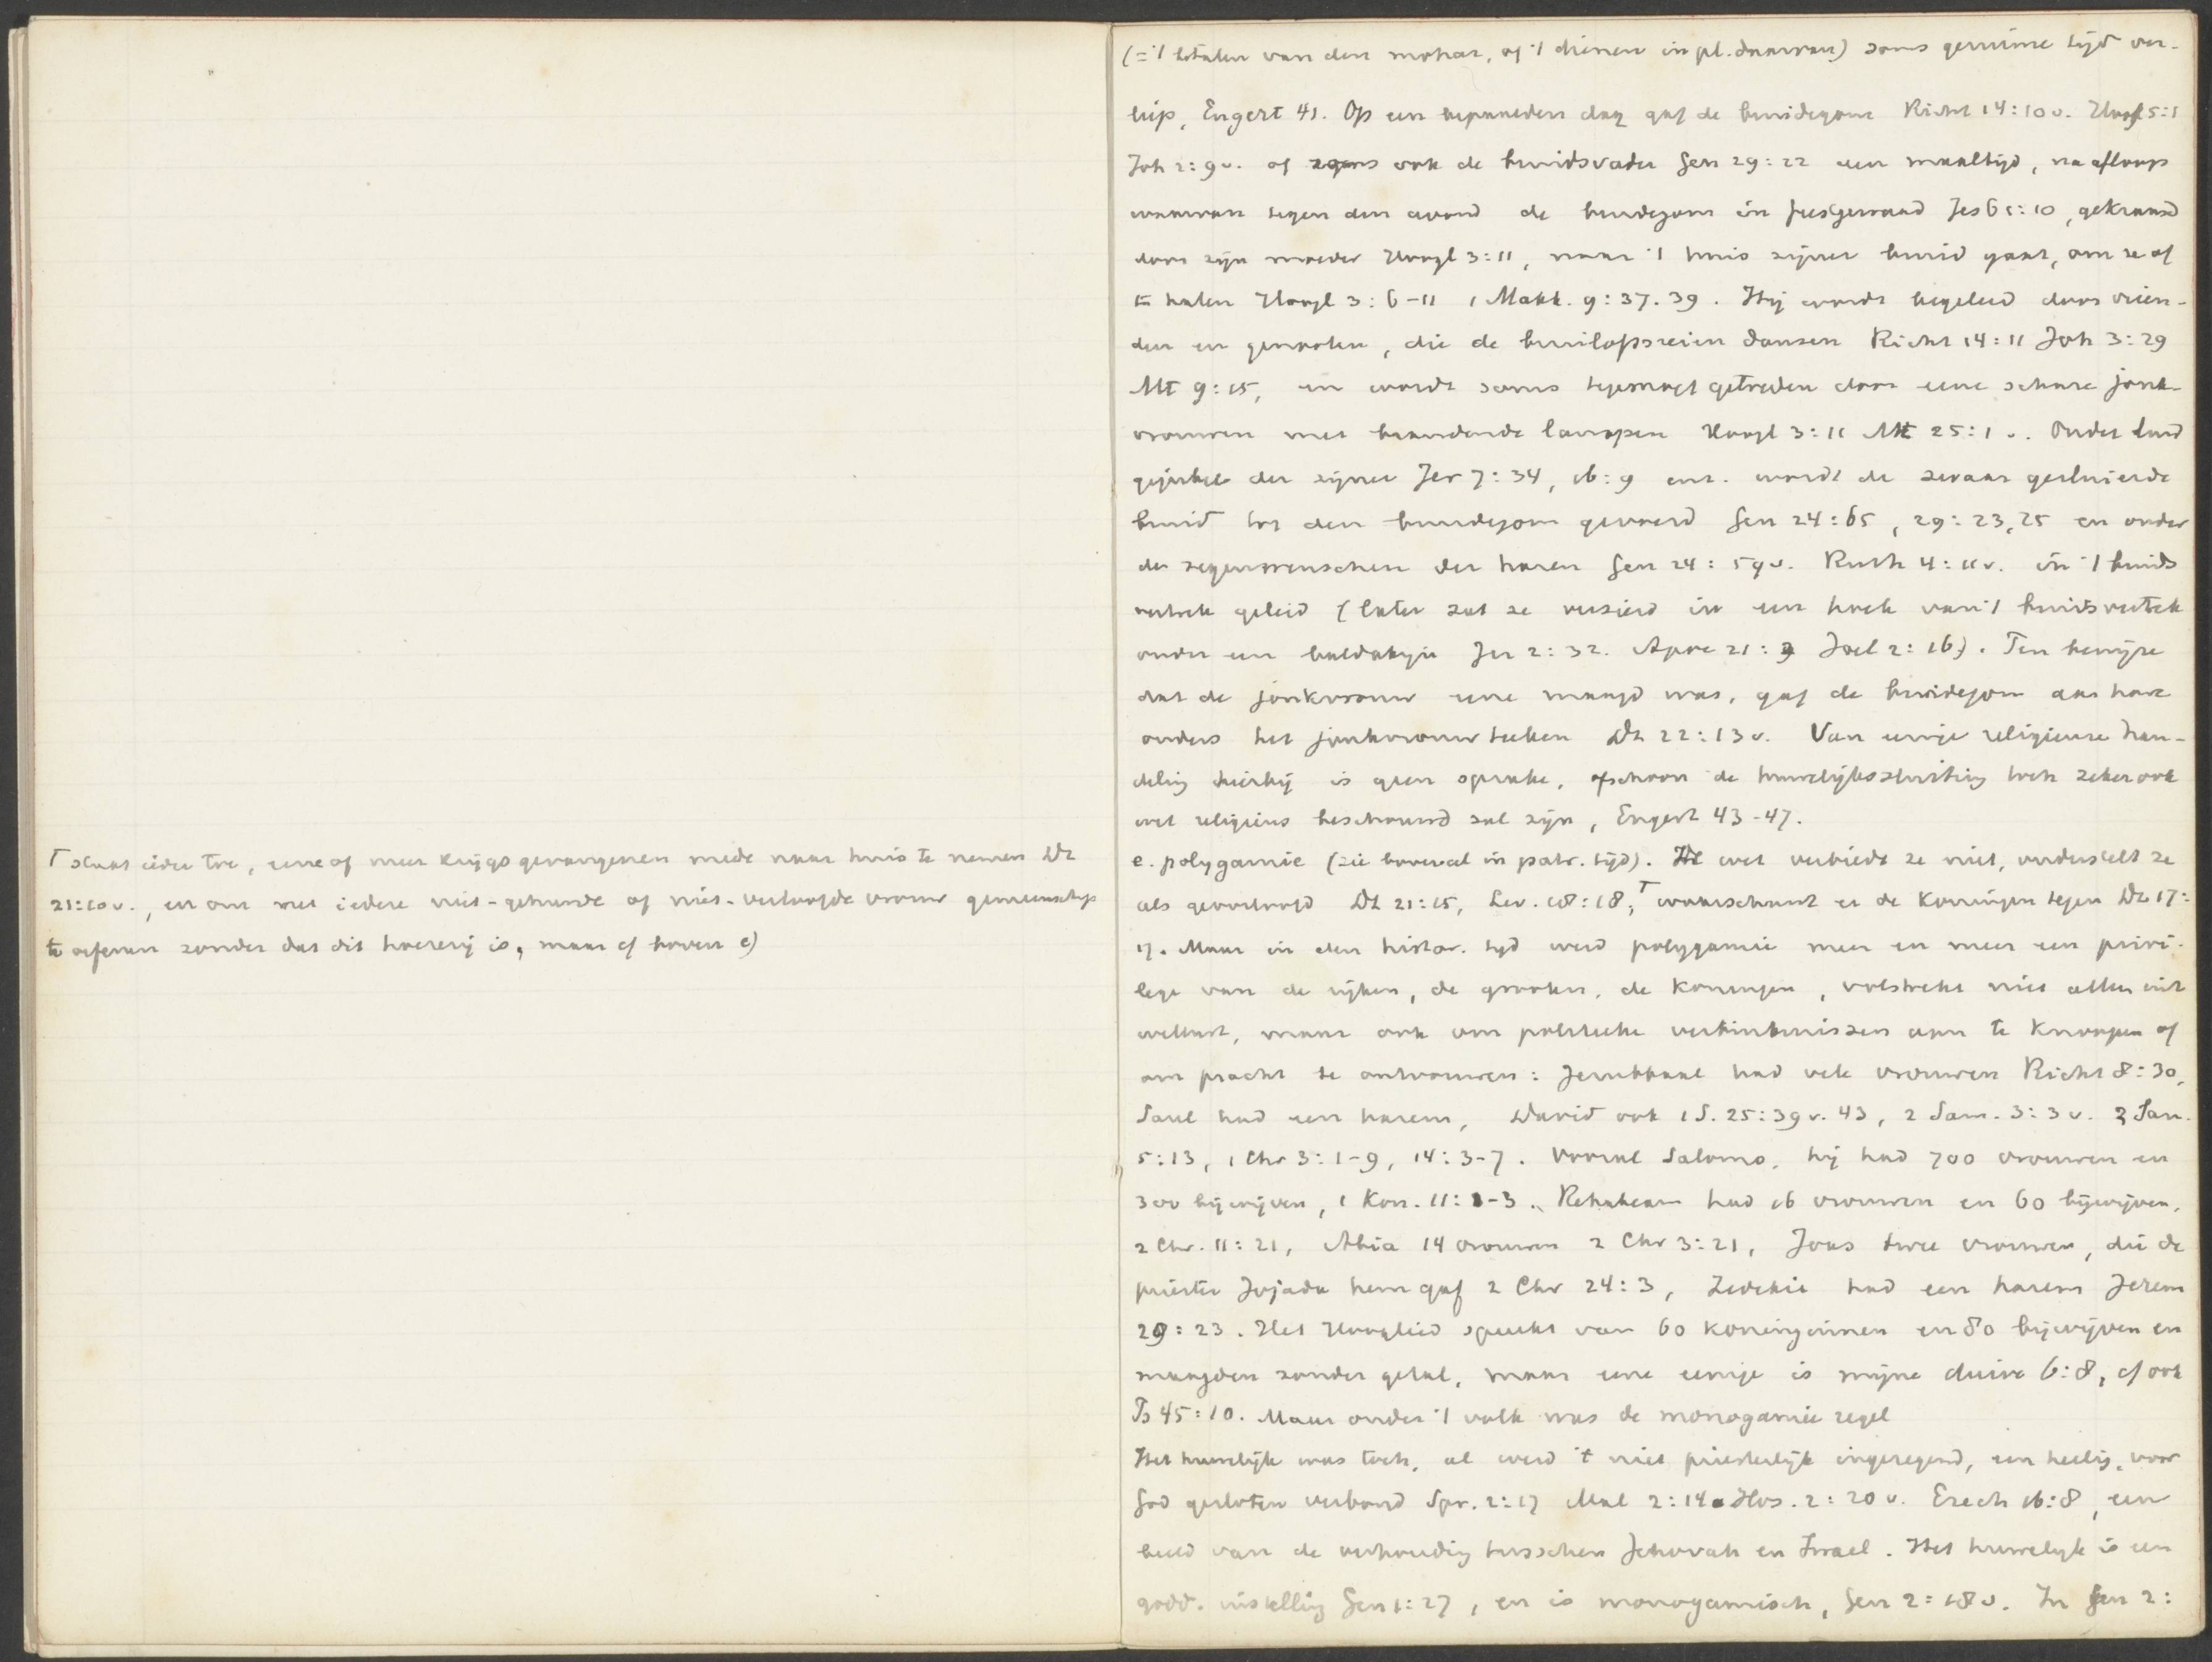 ⊤ staat ieder toe, eene of meer krijgsgevangenen mede naar huis te nemen Dt
21:10v., en om met iedere niet-gehuwde of niet-verloofde vrouw gemeenschap
te oefenen zonder dat dit hoererij is, maar cf boven c)
(= 't betalen van den mohar, of 't dienen in pl. daarvan) soms geruime tijd ver-
liep, Engert 41. Op een bepaalden dag gaf de bruidegom Richt 14:10v. Hoogl 5:1
Joh 2:9v. of ook de bruidsvader Gen 29:22 een maaltijd, na afloop
waarvan tegen den avond de bruidegom in feestgewaad Jes 61:10, gekranst
door zijn moeder Hoogl 3:11, naar 't huis zijner bruid gaat, om ze af
te halen Hoogl 3:6-11 1 Makk. 9:37.39. Hij wordt begeleid door vrien-
den en genooten, die de bruiloftsreien dansen Richt 14:11 Joh 3:29
Mt 9:15, en wordt soms tegemoet getreden door eene schare jonk-
vrouwen met brandende lampen Hoogl 3:11 Mt 25:1v. Onder luid
gejubel der zijnen Jer 7:34, 16:9 enz. wordt de zwaar gesluierde
bruid tot den bruidegom gevoerd Gen 24:65, 29:23,25 en onder
de zegenwenschen der haren Gen 24:59v. Ruth 4:11v. in 't bruids
vertrek geleid (later zat ze versierd in een hoek van 't bruidsvertrek
onder een baldakijn Jer 2:32. Apoc 21:2 Joel 2:16). Ten bewijze
dat de jonkvrouw eene maagd was, gaf de bruidegom aan hare
ouders het jonkvrouwteeken Dt 22:13v. Van eenige religieuse han-
deling hierbij is geen sprake, ofschoon de huwelijkssluiting toch zeker ook
wel religieus beschouwd zal zijn, Engert 43-47.
e. polygamie (zie bovenal in patr. tijd). De wet verbiedt ze niet, onderstelt ze
als geoorloofd Dt 21:15, Lev. 18:18, ⊤ waarschuwt er de koningen tegen Dt 17:
17. Maar in den histor. tijd werd polygamie meer en meer een privi-
lege van de rijken, de grooten, de koningen, volstrekt niet alleen uit
wellust, maar ook om politieke verbintenissen aan te knoopen of
om pracht te ontvouwen: Jerubbaal had vele vrouwen Richt 8:30,
Saul had een harem, David ook 1 S. 25:39v. 43, 2 Sam. 3:3v. 2 Sam.
5:13, 1 Chr 3:1-9, 14:3-7. Vooral Salomo, hij had 700 vrouwen en
300 bijwijven, 1 Kon. 11:1-3. Rehabeam had 16 vrouwen en 60 bijwijven,
2 Chr. 11:21, Abia 14 vrouwen 2 Chr 3:21, Joas twee vrouwen, die de
priester Jojada hem gaf 2 Chr 24:3, Zedekia had een harem Jerem
29:23. Het Hooglied spreekt van 60 koninginnen en 80 bijwijven en
maagden zonder getal, maar eene eenige is mijne duive 6:8, cf ook
Ps 45:10. Maar onder 't volk was de monogamie regel
Het huwelijk was toch, al werd 't niet priesterlijk ingezegend, een heilig, voor
God gesloten verbond Spr. 2:17 Mal 2:14 Hos. 2:20v. Ezech 16:8, een
beeld van de verhouding tusschen Jehovah en Israel. Het huwelijk is een
godd. instelling Gen 1:27, en is monogamisch, Gen 2:18v. In Gen 2: